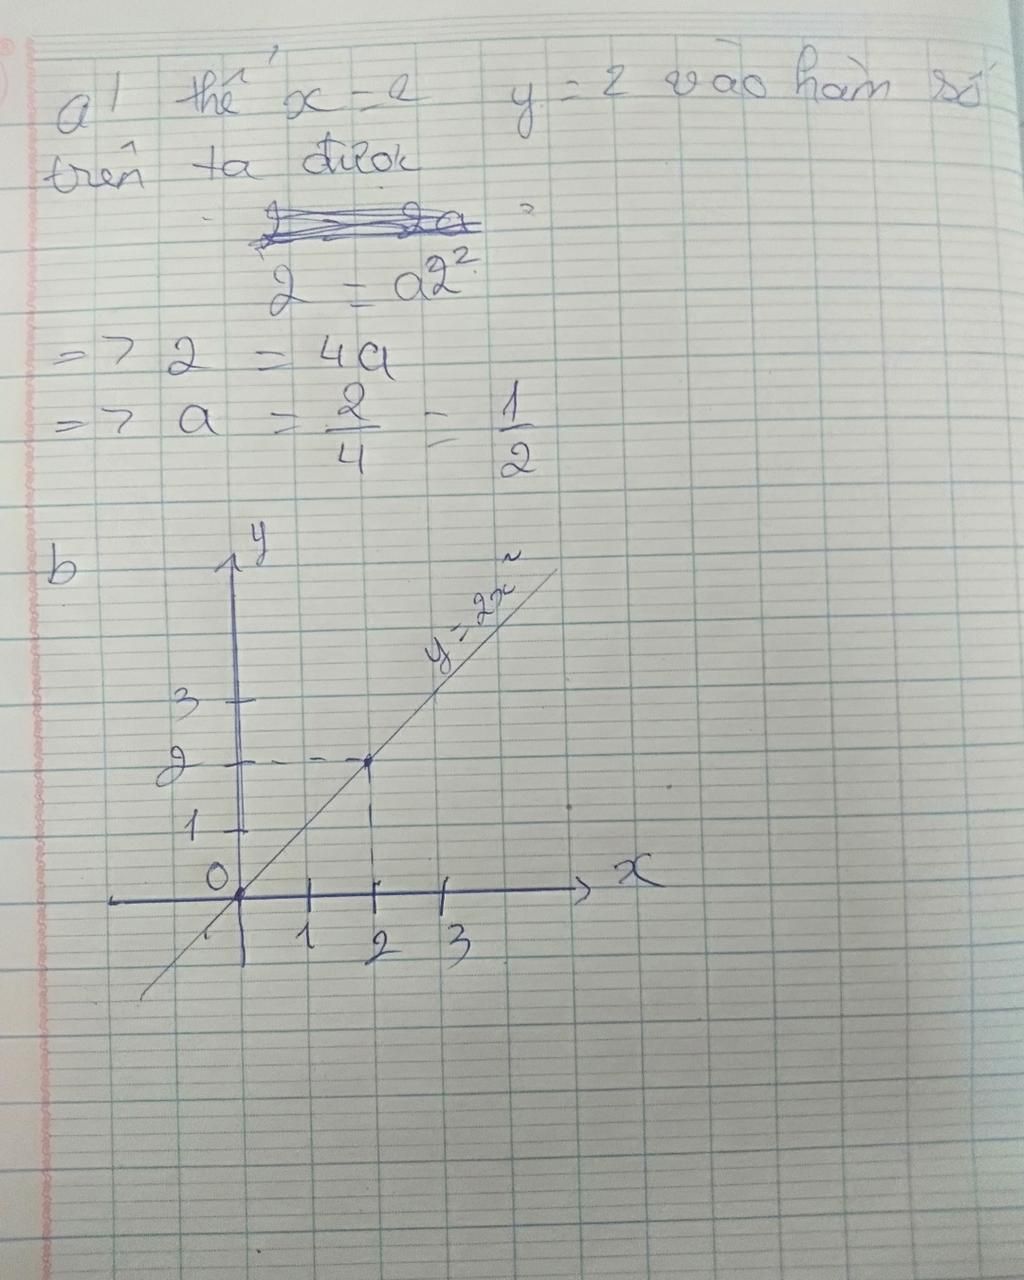 a) thế x = 2 y = 2 vào hàm số
trên ta được
2 = a2²
=> 2 = 4a
=> a = 2/4 = 1/2
b
y
y = 2x²
3
2
1
0
x
1 2 3